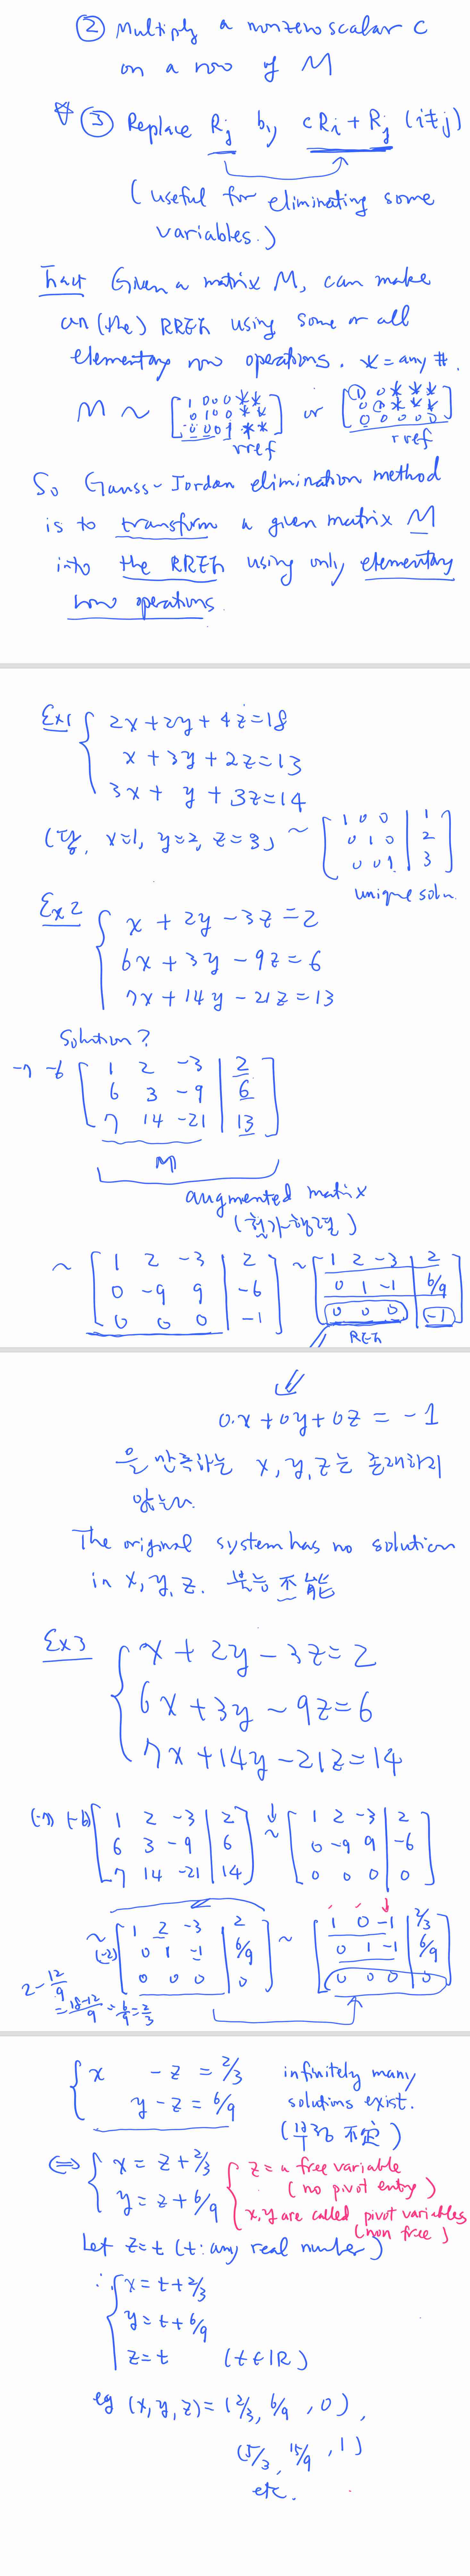 ② Multiply a nonzero scalar c
on a row of M
☆ ③ Replace Rj by cRi + Rj (i≠j)
(useful for eliminating some
variables.)
Fact Given a matrix M, can make
an (the) RREF using some or all
elementary row operations. * = any #.
M ~ [1 0 0 0 * *
0 1 0 0 * *
0 0 0 1 * *] or [① 0 * * *
0 ① * * *
0 0 0 0 0]
rref rref
So Gauss-Jordan elimination method
is to transform a given matrix M
into the RREF using only elementary
row operations.
Ex1 { 2x+2y+4z=18
x+3y+2z=13
3x+y+3z=14
(답. x=1, y=2, z=3) ~ [1 0 0 | 1
0 1 0 | 2
0 0 1 | 3]
unique soln.
Ex2 { x+2y-3z=2
6x+3y-9z=6
7x+14y-21z=13
Solution?
-7 -6 [1 2 -3 | 2
6 3 -9 | 6
7 14 -21 | 13]
M
augmented matrix
(첨가행렬)
~ [1 2 -3 | 2
0 -9 9 | -6
0 0 0 | -1] ~ [1 2 -3 | 2
0 1 -1 | 6/9
0 0 0 | -1]
REF
0·x+0y+0z = -1
을 만족하는 x, y, z는 존재하지
않는다.
The original system has no solution
in x, y, z. 불능 不能
Ex3 { x+2y-3z=2
6x+3y-9z=6
7x+14y-21z=14
(-7) (-6) [1 2 -3 | 2
6 3 -9 | 6
7 14 -21 | 14] ~ [1 2 -3 | 2
0 -9 9 | -6
0 0 0 | 0]
~ (-2) [1 2 -3 | 2
0 1 -1 | 6/9
0 0 0 | 0] ~ [1 0 -1 | 2/3
0 1 -1 | 6/9
0 0 0 | 0]
2-12/9
=18-12/9 = 6/9 = 2/3
{ x -z = 2/3 infinitely many
y-z = 6/9 solutions exist.
(부정 不定)
⇔ { x = z+2/3 { z = a free variable
(no pivot entry)
y = z+6/9 x, y are called pivot variables
(non free)
Let z=t (t: any real number)
∴ { x=t+2/3
y=t+6/9
z=t (t∈ℝ)
eg (x,y,z)=(2/3, 6/9, 0),
(5/3, 15/9, 1)
etc.